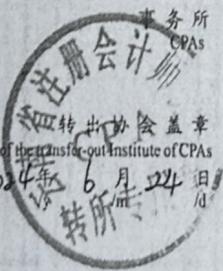 事务所
CPAs
省注册会计师
转出协会盖章
of the transfer-out Institute of CPAs
2024年 6月 24日
/m /d
转所专